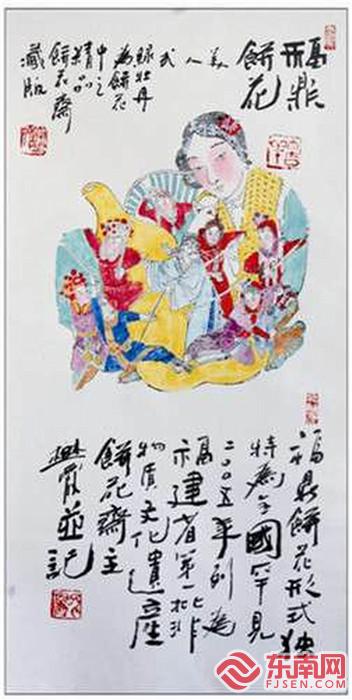 福鼎
餅花
美
人
武
綠牡丹
為餅花
中之
精品
餅花齋
藏版
福鼎餅花形式独
特為全國罕見
二〇〇五年列為
福建省第一批非
物質文化遺產
餅花齋主
並記
东南网
FJSEN.COM